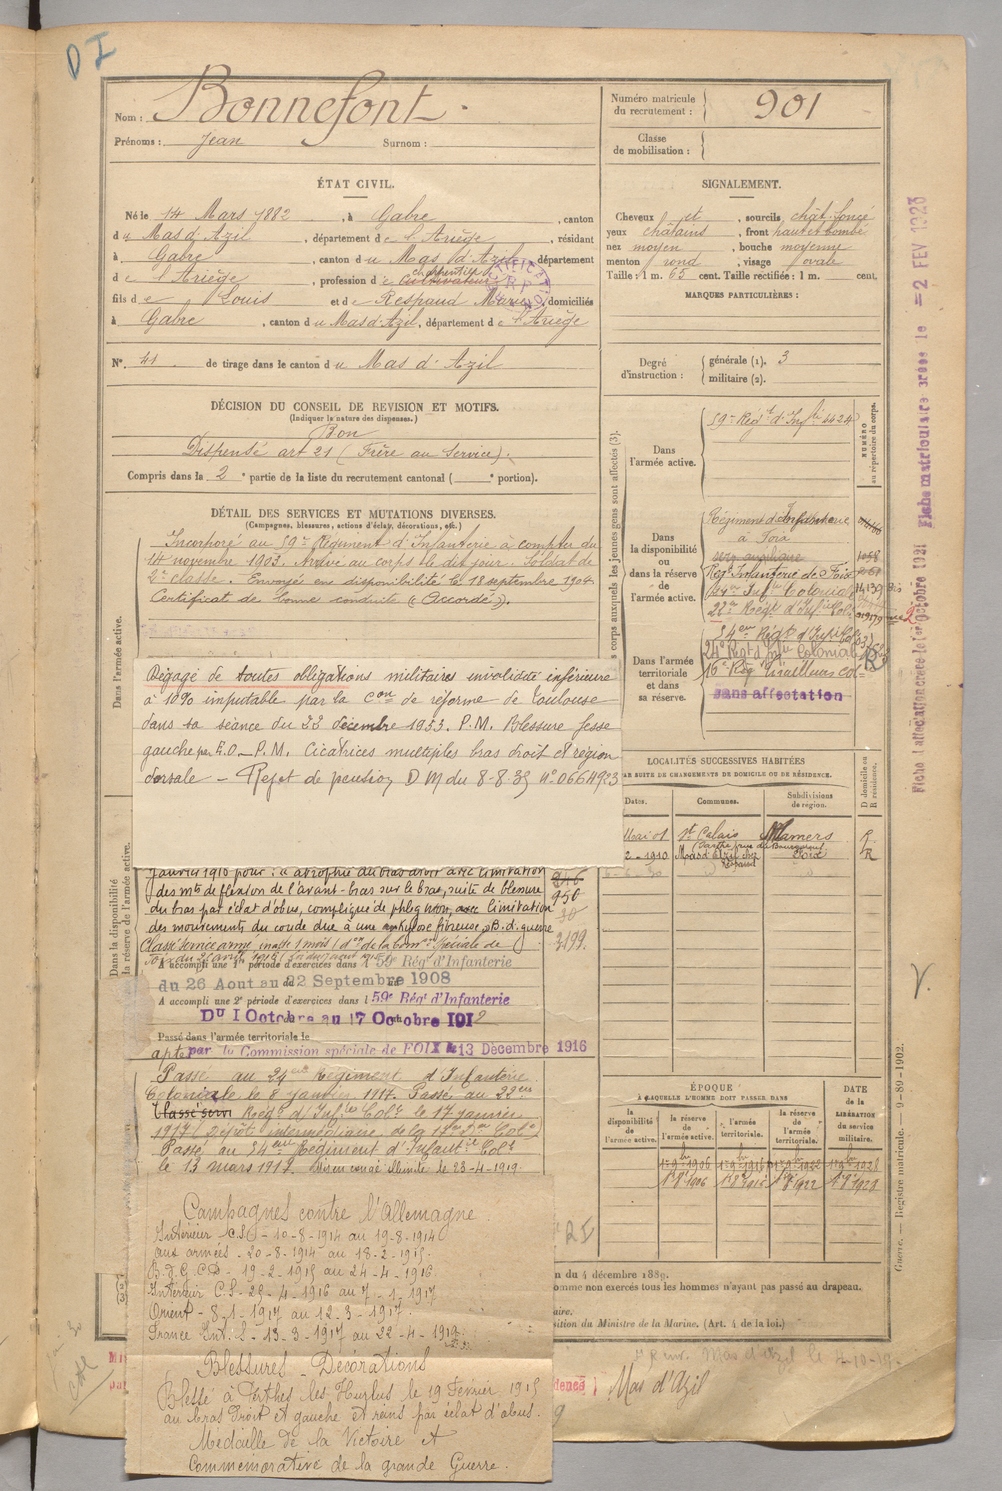 D I
Nom : Bonnefont
Prénoms : Jean Surnom :
Numéro matricule
du recrutement : 901
Classe
de mobilisation :
ÉTAT CIVIL.
Né le 14 Mars 1882 , à Gabre , canton
du Mas d'Azil , département de l'Ariège , résidant
à Gabre , canton du Mas d'Azil , département
de l'Ariège , profession de charpentier
fils de Louis et de Respaud Marie , domiciliés
à Gabre , canton du Mas d'Azil , département de l'Ariège
N° 41 de tirage dans le canton du Mas d'Azil
SIGNALEMENT.
Cheveux et , sourcils chât. foncé
yeux châtains , front haut et bombé
nez moyen , bouche moyenne
menton rond , visage ovale
Taille : 1 m. 65 cent. Taille rectifiée : 1 m. cent.
MARQUES PARTICULIÈRES :
Degré
d'instruction :
générale (1). 3
militaire (2).
DÉCISION DU CONSEIL DE REVISION ET MOTIFS.
(Indiquer la nature des dispenses.)
Bon
Dispensé art 21 (Frère au Service).
Compris dans la 2e partie de la liste du recrutement cantonal ( e portion).
DÉTAIL DES SERVICES ET MUTATIONS DIVERSES.
(Campagnes, blessures, actions d'éclat, décorations, etc.)
Dans l'armée active.
Incorporé au 59e Régiment d'Infanterie à compter du
14 novembre 1903. Arrivé au corps le dit jour. Soldat de
2e classe. Envoyé en disponibilité le 18 septembre 1904
Certificat de bonne conduite "Accordé".
Dégagé de toutes obligations militaires invalidité inférieure
à 10% imputable par la Con de réforme de Toulouse
dans sa séance du 22 décembre 1933. P.M. Blessure fesse
gauche par E.O. P.M. Cicatrices multiples bras droit et région
dorsale - Rejet de pension D M du 8-8-35 n° 0664923
Dans la disponibilité
la réserve de l'armée active.
janvier 1916 pour : a atrophie du bras droit avec limitation
des mts de flexion de l'avant-bras sur le bras, suite de blessure
du bras par éclat d'obus, compliqué de phlegmon, avec limitation
des mouvements du coude due à une ankylose fibreuse. B. de guerre
950
3199.
A accompli une 1re période d'exercices dans l 59e Régt d'Infanterie
du 26 Aout au 22 Septembre 1908
A accompli une 2e période d'exercices dans l 59e Régt d'Infanterie
Du 1 Octobre au 17 Octobre 1912
Passé dans l'armée territoriale le
apte par la Commission spéciale de FOIX le 13 Décembre 1916
Passé au 24e Régiment d'Infanterie
Coloniale le 8 janvier 1917. Passé au 22eme
Classé servi Régt d'Infrie Colle le 17 janvier
1917
Passé au 54eme Régiment d'Infanterie Colle
le 13 mars 1917. Mis en congé illimité le 23-4-1919
Campagnes contre l'Allemagne
Intérieur C.S. - 10-8-1914 au 19-8-1914
aux armées - 20-8-1914 au 18-2-1915.
B.d.G. C.D - 19-2-1915 au 24-4-1916
Intérieur C.S - 25-4-1916 au 7-1-1917
Orient - 8-1-1917 au 12-3-1917
France Int. S - 13-3-1917 au 22-4-1919
Blessures - Décorations
Blessé à Perthes les Hurlus le 19 Février 1915
au bras droit et gauche et reins par éclat d'obus.
Médaille de la Victoire et
Commémorative de la grande Guerre.
corps auxquels les jeunes gens sont affectés (3).
NUMÉRO
au répertoire du corps.
Dans
l'armée active.
59e Régt d'Infrie 4424
Dans
la disponibilité
ou
dans la réserve
de
l'armée active.
Régiment d'Infanterie
à Foix
serv. auxiliaire
Régt Infanterie de Foix
24e Infrie Coloniale
22e Régt d'Infrie Col.
Dans l'armée
territoriale
et dans
sa réserve.
54eme Régt d'Infrie Col
24e Régt d'Infrie Coloniale
16e Rég Tirailleurs col.
Sans affectation
R
LOCALITÉS SUCCESSIVES HABITÉES
PAR SUITE DE CHANGEMENTS DE DOMICILE OU DE RÉSIDENCE.
Dates. Communes. Subdivisions
de région.
D domicile ou
R résidence.
St Calais Mamers
2-1910 Mas d'Azil Foix R
ÉPOQUE
À LAQUELLE L'HOMME DOIT PASSER DANS
la
disponibilité
de
l'armée active.
la réserve
de
l'armée active.
l'armée
territoriale.
la réserve
de
l'armée
territoriale.
DATE
de la
LIBÉRATION
du service
militaire.
1er 9bre 1906 1er 9bre 1916 1er 9bre 1922 1er 9bre 1928
V.
Guerre. — Registre matricule. — 9-89-1902.
Fiche matriculaire créée le = 2 FEV 1923
Fiche d'affectation créée le 1er octobre 1921
n du 4 décembre 1889.
omme non exercés tous les hommes n'ayant pas passé au drapeau.
aire.
sition du Ministre de la Marine. (Art. 4 de la loi.)
Mas d'Azil